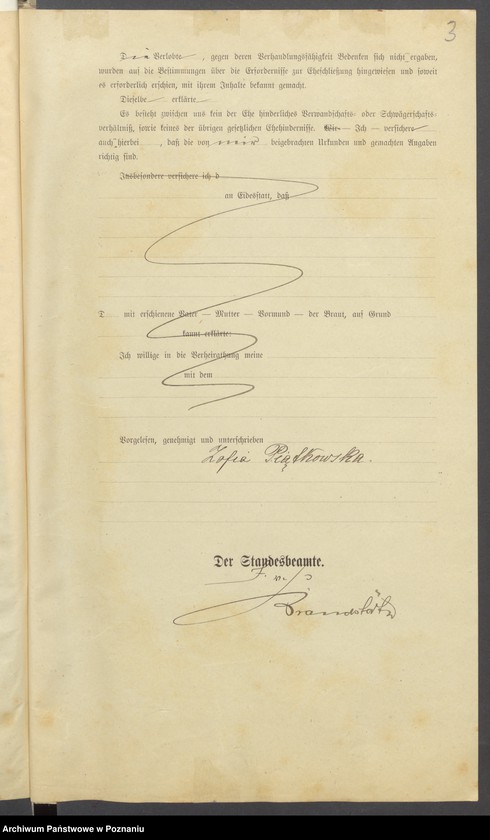 3
Die Verlobte, gegen deren Verhandlungsfähigkeit Bedenken sich nicht ergaben,
wurden auf die Bestimmungen über die Erfordernisse zur Eheschließung hingewiesen und soweit
es erforderlich erschien, mit ihrem Inhalte bekannt gemacht.
Dieselbe erklärte
Es besteht zwischen uns kein der Ehe hinderliches Verwandschafts- oder Schwägerschafts-
verhältniß, sowie keines der übrigen gesetzlichen Ehehindernisse. Wir — Ich — versichere
auch hierbei, daß die von mir beigebrachten Urkunden und gemachten Angaben
richtig sind.
Insbesondere versichere ich d
an Eidesstatt, daß
D mit erschienene Vater — Mutter — Vormund — der Braut, auf Grund
kannt erklärte:
Ich willige in die Verheirathung meine
mit dem
Vorgelesen, genehmigt und unterschrieben
Zofia Piątkowska.
Der Standesbeamte.
Brandstätt
Archiwum Państwowe w Poznaniu